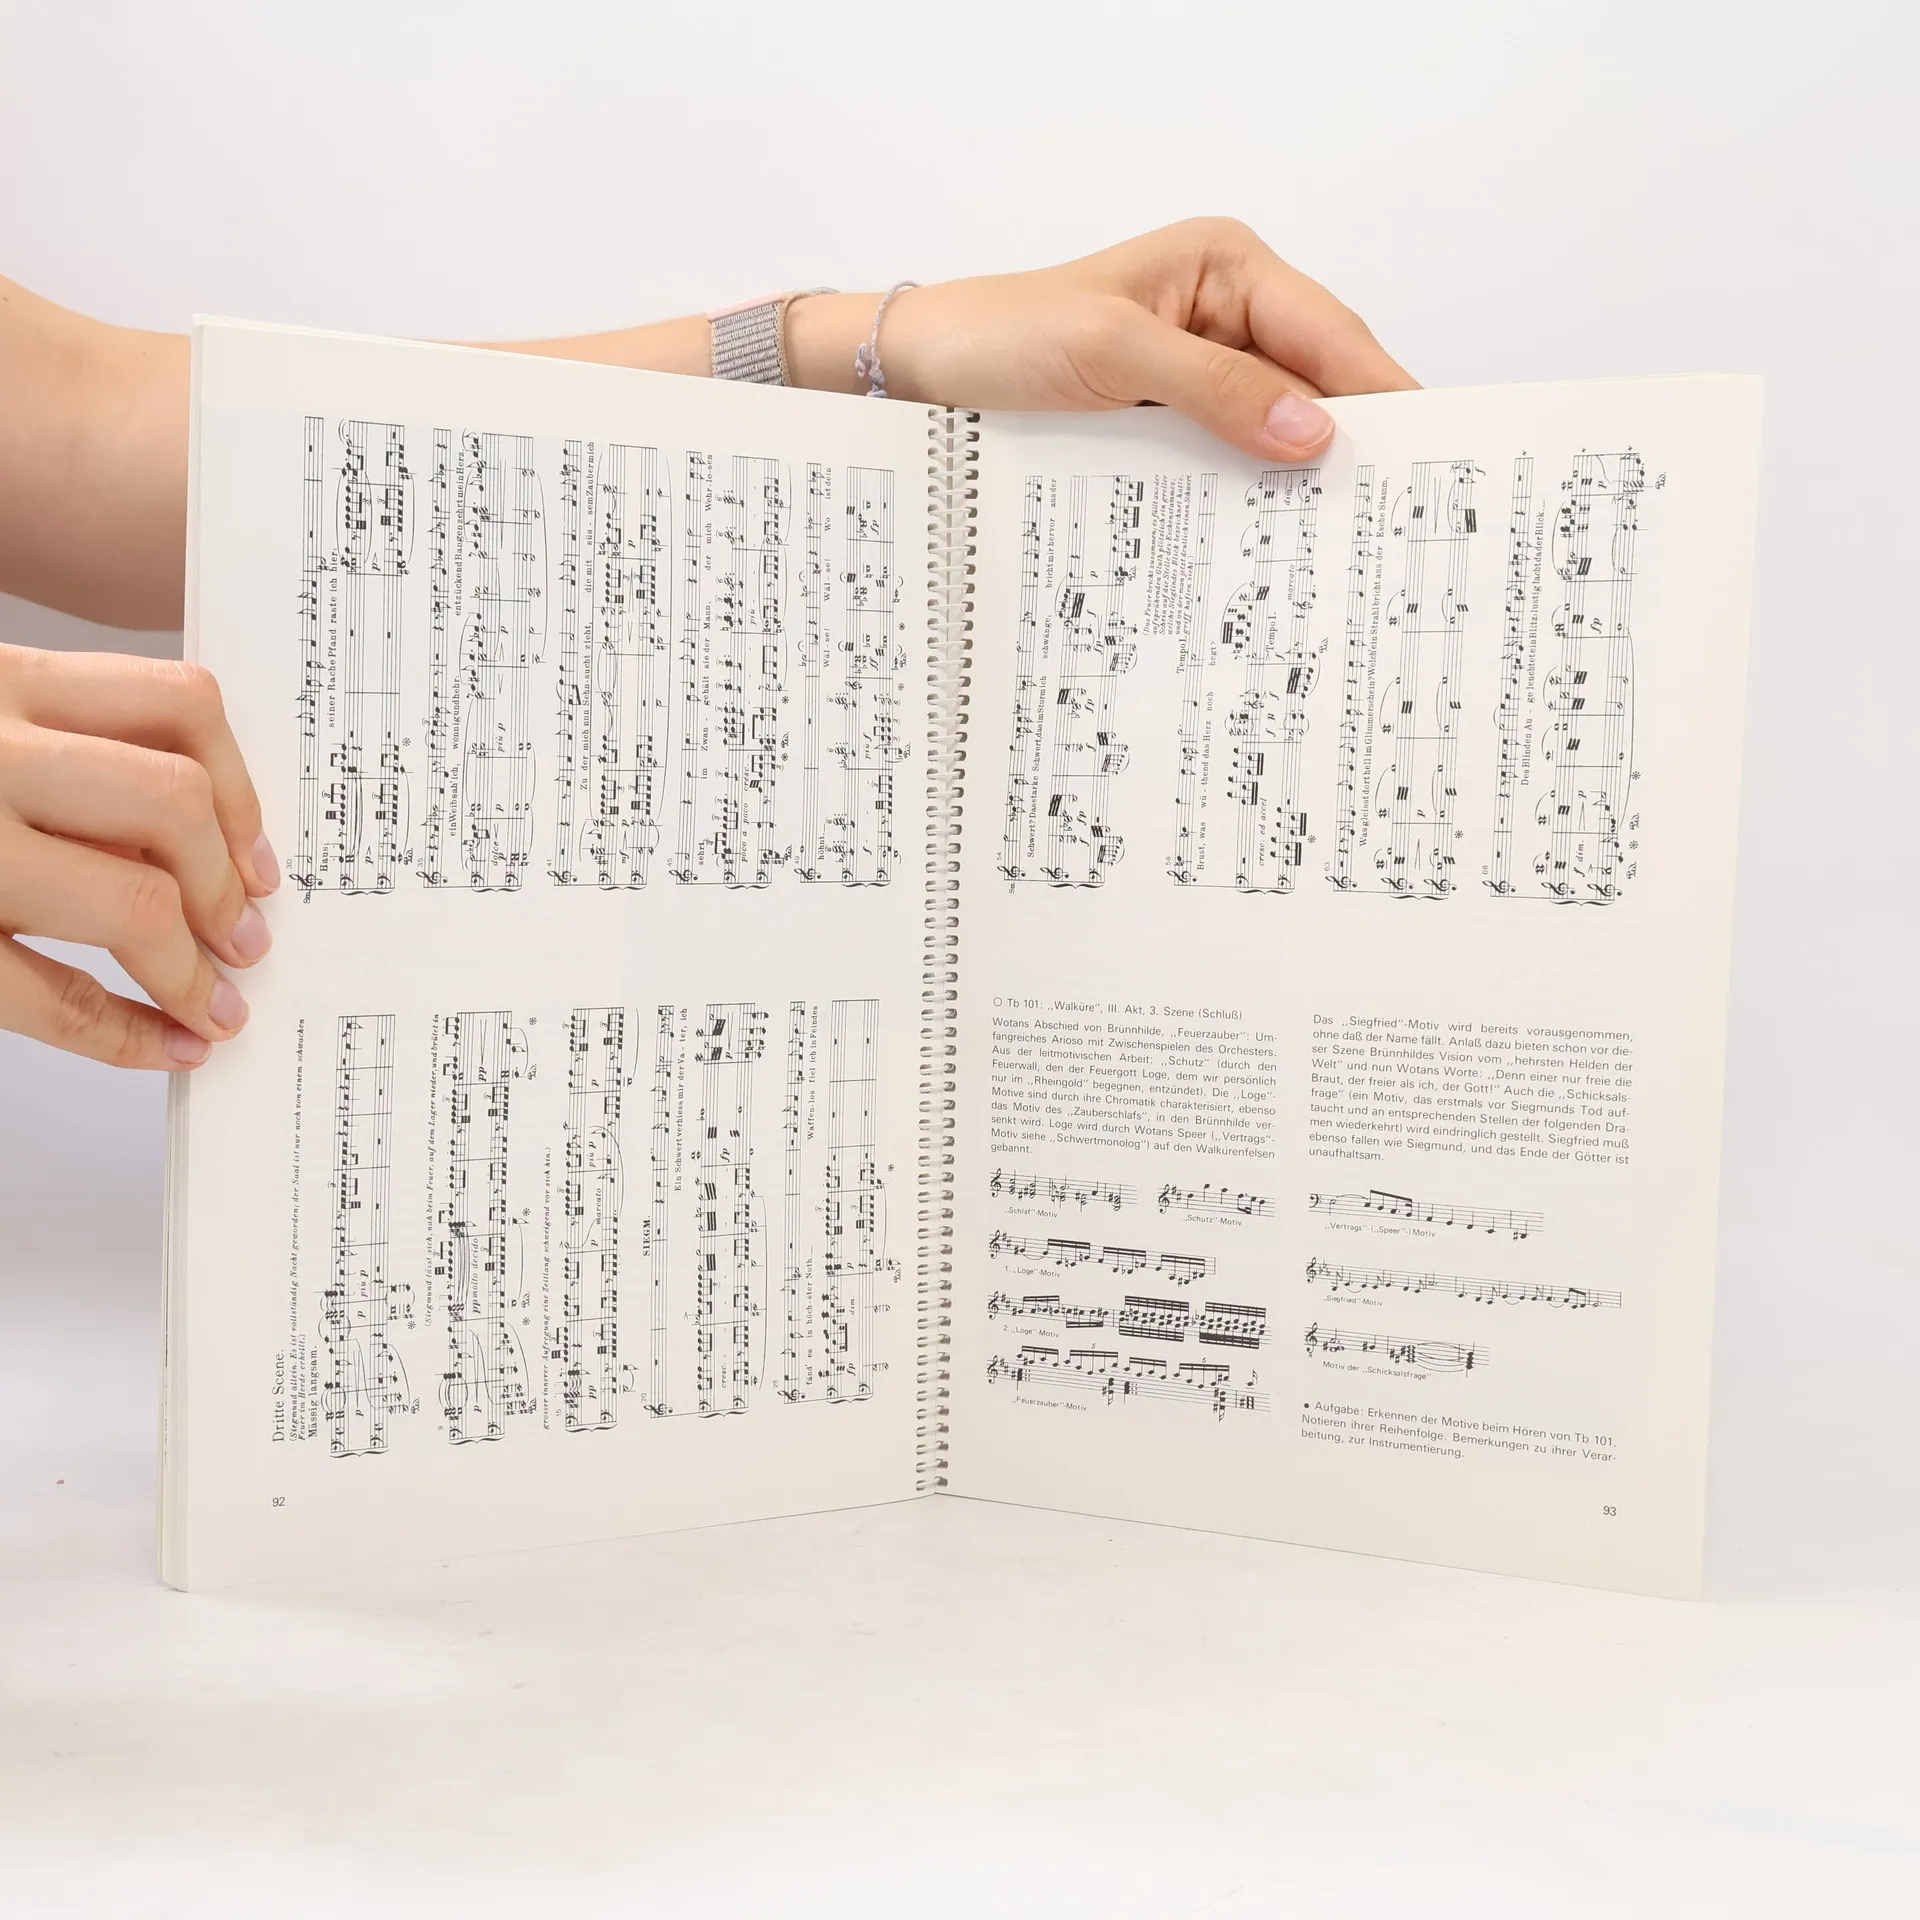 Dritte Scene.
(Siegmund allein. Es ist vollständig Nacht geworden; der Saal ist nur noch von einem schwachen
Feuer im Herde erhellt.)
Mässig langsam.
(Siegmund lässt sich, nah beim Feuer, auf dem Lager nieder, und brütet in
grosser innerer Aufregung eine Zeitlang schweigend vor sich hin.)
SIEGM.
Ein Schwert verhiess mir der Va - ter, ich
fänd' es in höch - ster Noth.
Waffen-los fiel ich in Feindes
Haus;
seiner Rache Pfand raste ich hier:
ein Weib sah' ich, wonnig und hehr:
entzückend Bangen zehrt mein Herz.
Zu der mich nun Sehn - sucht zieht, die mit süs - sem Zauber mich
sehrt,
im Zwan - ge hält sie der Mann, der mich Wehr - lo - sen
höhnt.
Wäl - se! Wäl - se! Wo ist dein
92
Schwert? Das starke Schwert, das im Sturm ich schwänge,
bricht mir hervor aus der
(Das Feuer bricht zusammen; es fällt aus der
aufsprühenden Gluth plötzlich ein greller
Schein auf die Stelle des Eschenstammes,
welche Sieglindes Blick bezeichnet hatte,
und an der man jetzt deutlich einen Schwert-
griff haften sieht.)
Tempo I.
Brust, was wü - thend das Herz noch hegt?
Was gleisst dort hell im Glimmerschein? Welch' ein Strahl bricht aus der Esche Stamm,
Des Blinden Au - ge leuchtet ein Blitz: lustig lacht da der Blick.
○ Tb 101: „Walküre“, III. Akt, 3. Szene (Schluß)
Wotans Abschied von Brünnhilde, „Feuerzauber“: Um-
fangreiches Arioso mit Zwischenspielen des Orchesters.
Aus der leitmotivischen Arbeit: „Schutz“ (durch den
Feuerwall, den der Feuergott Loge, dem wir persönlich
nur im „Rheingold“ begegnen, entzündet). Die „Loge“-
Motive sind durch ihre Chromatik charakterisiert, ebenso
das Motiv des „Zauberschlafs“, in den Brünnhilde ver-
senkt wird. Loge wird durch Wotans Speer („Vertrags“-
Motiv siehe „Schwertmonolog“) auf den Walkürenfelsen
gebannt.
„Schlaf“-Motiv
„Schutz“-Motiv
1. „Loge“-Motiv
2. „Loge“-Motiv
„Feuerzauber“-Motiv
Das „Siegfried“-Motiv wird bereits vorausgenommen,
ohne daß der Name fällt. Anlaß dazu bieten schon vor die-
ser Szene Brünnhildes Vision vom „hehrsten Helden der
Welt“ und nun Wotans Worte: „Denn einer nur freie die
Braut, der freier als ich, der Gott!“ Auch die „Schicksals-
frage“ (ein Motiv, das erstmals vor Siegmunds Tod auf-
taucht und an entsprechenden Stellen der folgenden Dra-
men wiederkehrt) wird eindringlich gestellt. Siegfried muß
ebenso fallen wie Siegmund, und das Ende der Götter ist
unaufhaltsam.
„Vertrags“-(„Speer“-)Motiv
„Siegfried“-Motiv
Motiv der „Schicksalsfrage“
● Aufgabe: Erkennen der Motive beim Hören von Tb 101.
Notieren ihrer Reihenfolge. Bemerkungen zu ihrer Verar-
beitung, zur Instrumentierung.
93